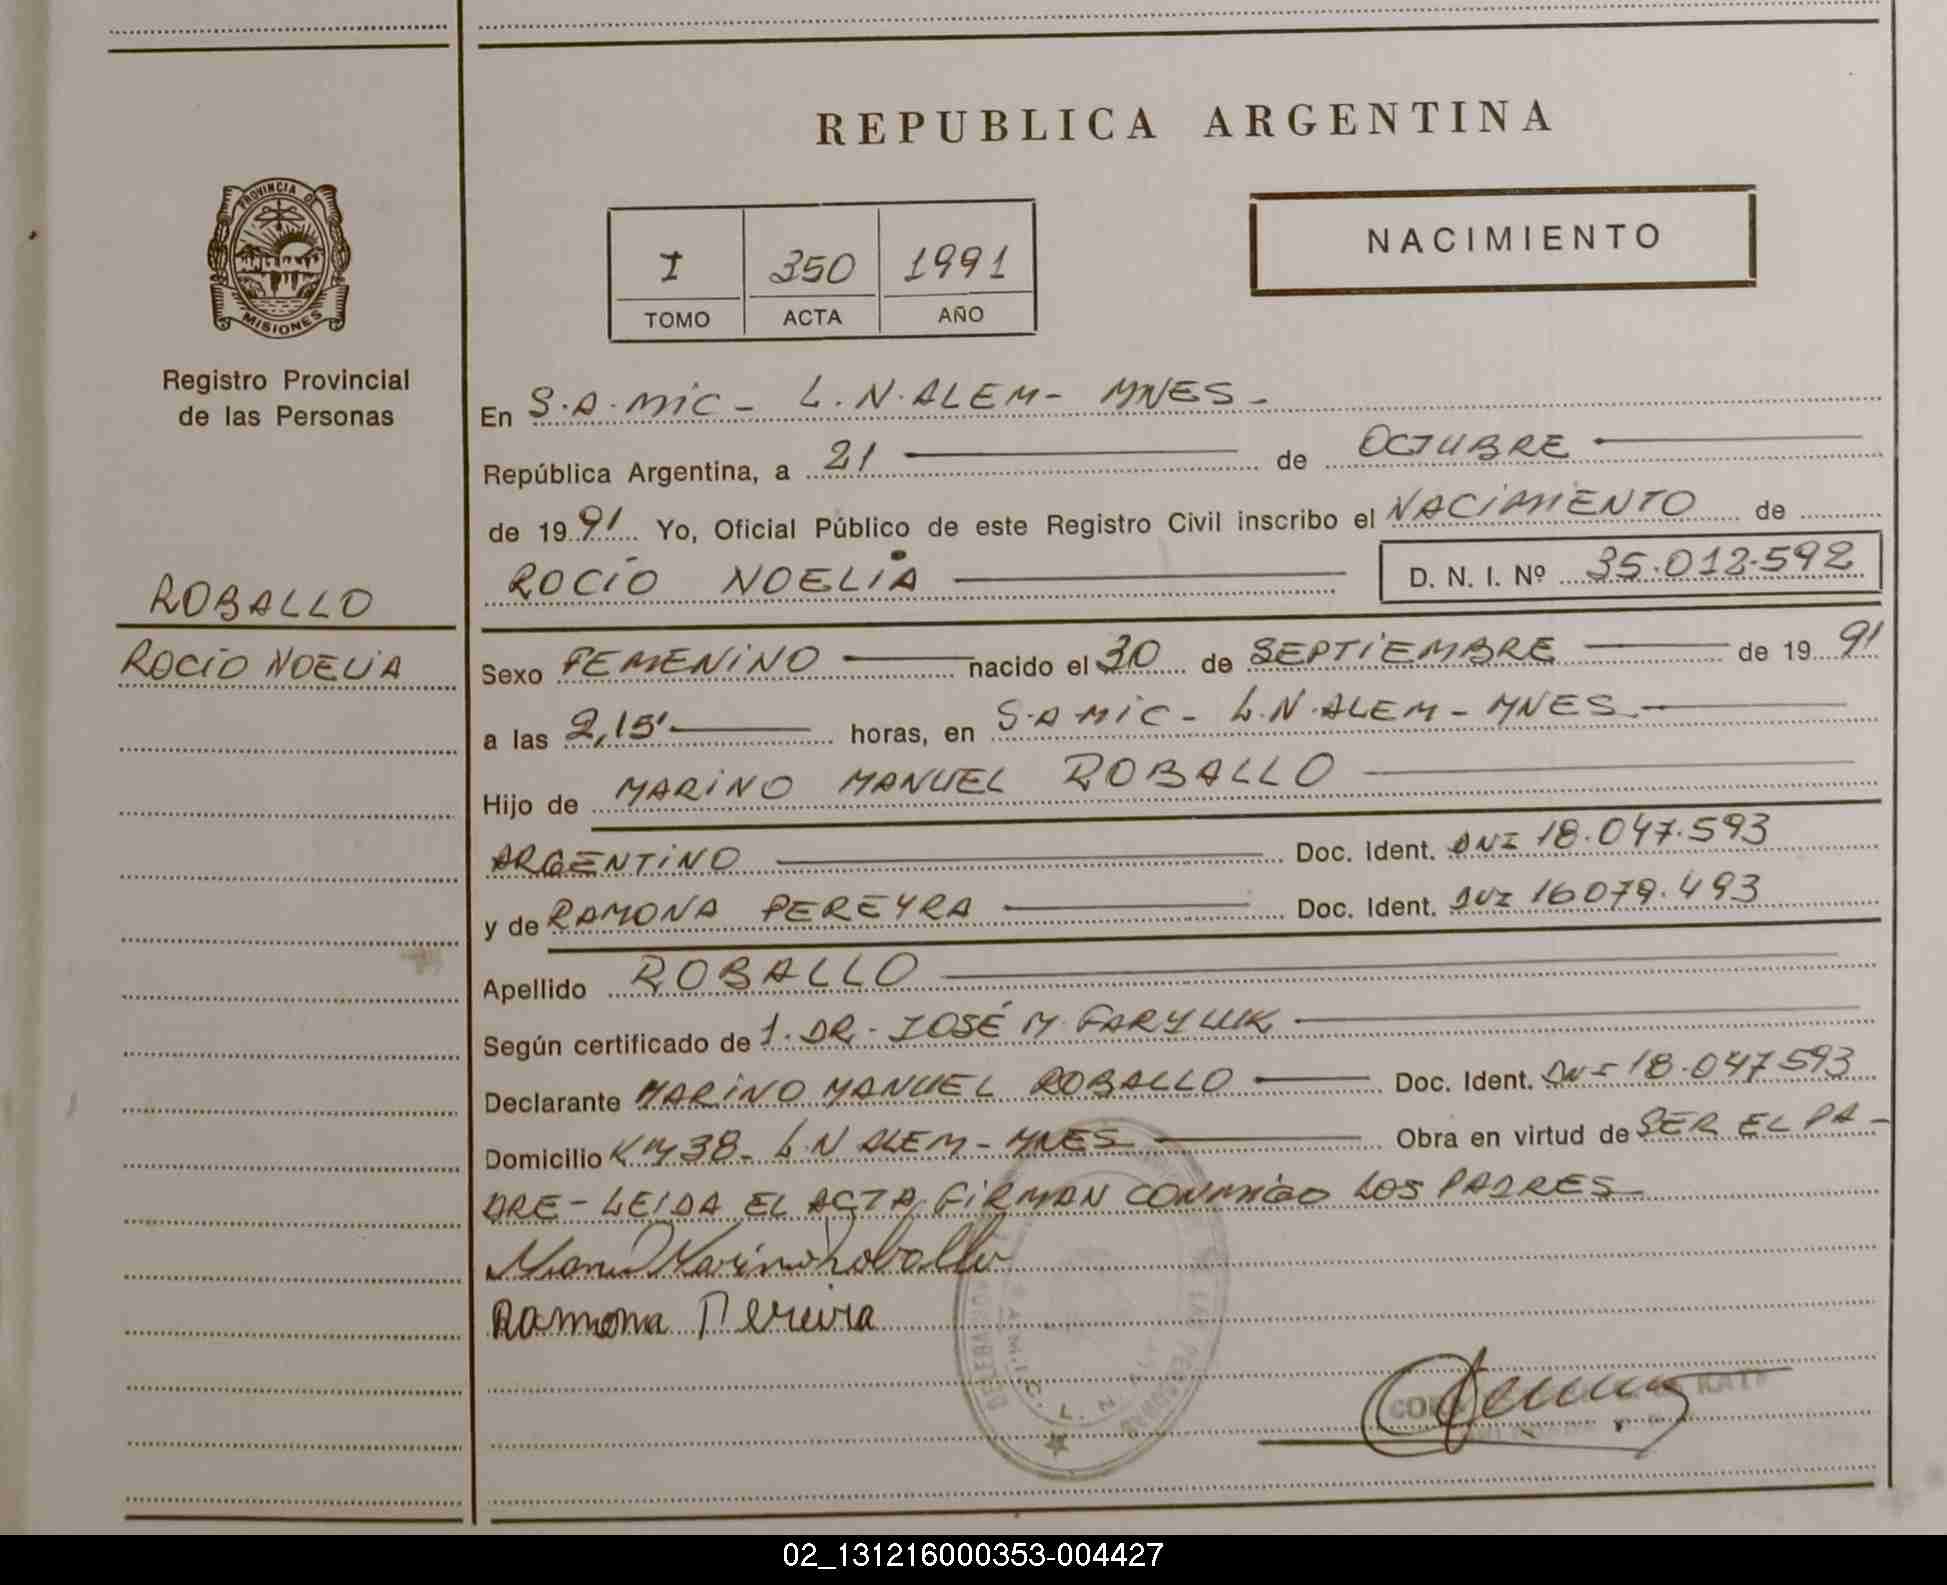 REPUBLICA ARGENTINA
PROVINCIA DE
MISIONES
Registro Provincial
de las Personas
I 350 1991
TOMO ACTA AÑO
NACIMIENTO
En S.A.MIC - L.N.ALEM - MNES -
República Argentina, a 21 de OCTUBRE
de 1991 Yo, Oficial Público de este Registro Civil inscribo el NACIMIENTO de
ROCIO NOELIA D. N. I. Nº 35.012.592
ROBALLO
ROCIO NOELIA
Sexo FEMENINO nacido el 30 de SEPTIEMBRE de 1991
a las 2,15' horas, en S.A MIC - L.N.ALEM - MNES
Hijo de MARINO MANUEL ROBALLO
ARGENTINO Doc. Ident. DNI 18.047.593
y de RAMONA PEREYRA Doc. Ident. DNI 16079.493
Apellido ROBALLO
Según certificado de 1. DR. JOSÉ M.
Declarante MARINO MANUEL ROBALLO Doc. Ident. DNI 18.047593
Domicilio KM 38 - L.N ALEM - MNES Obra en virtud de SER EL PA-
DRE - LEIDA EL ACTA FIRMAN CONMIGO LOS PADRES
Marino Roballo
Ramona Pereira
02_131216000353-004427